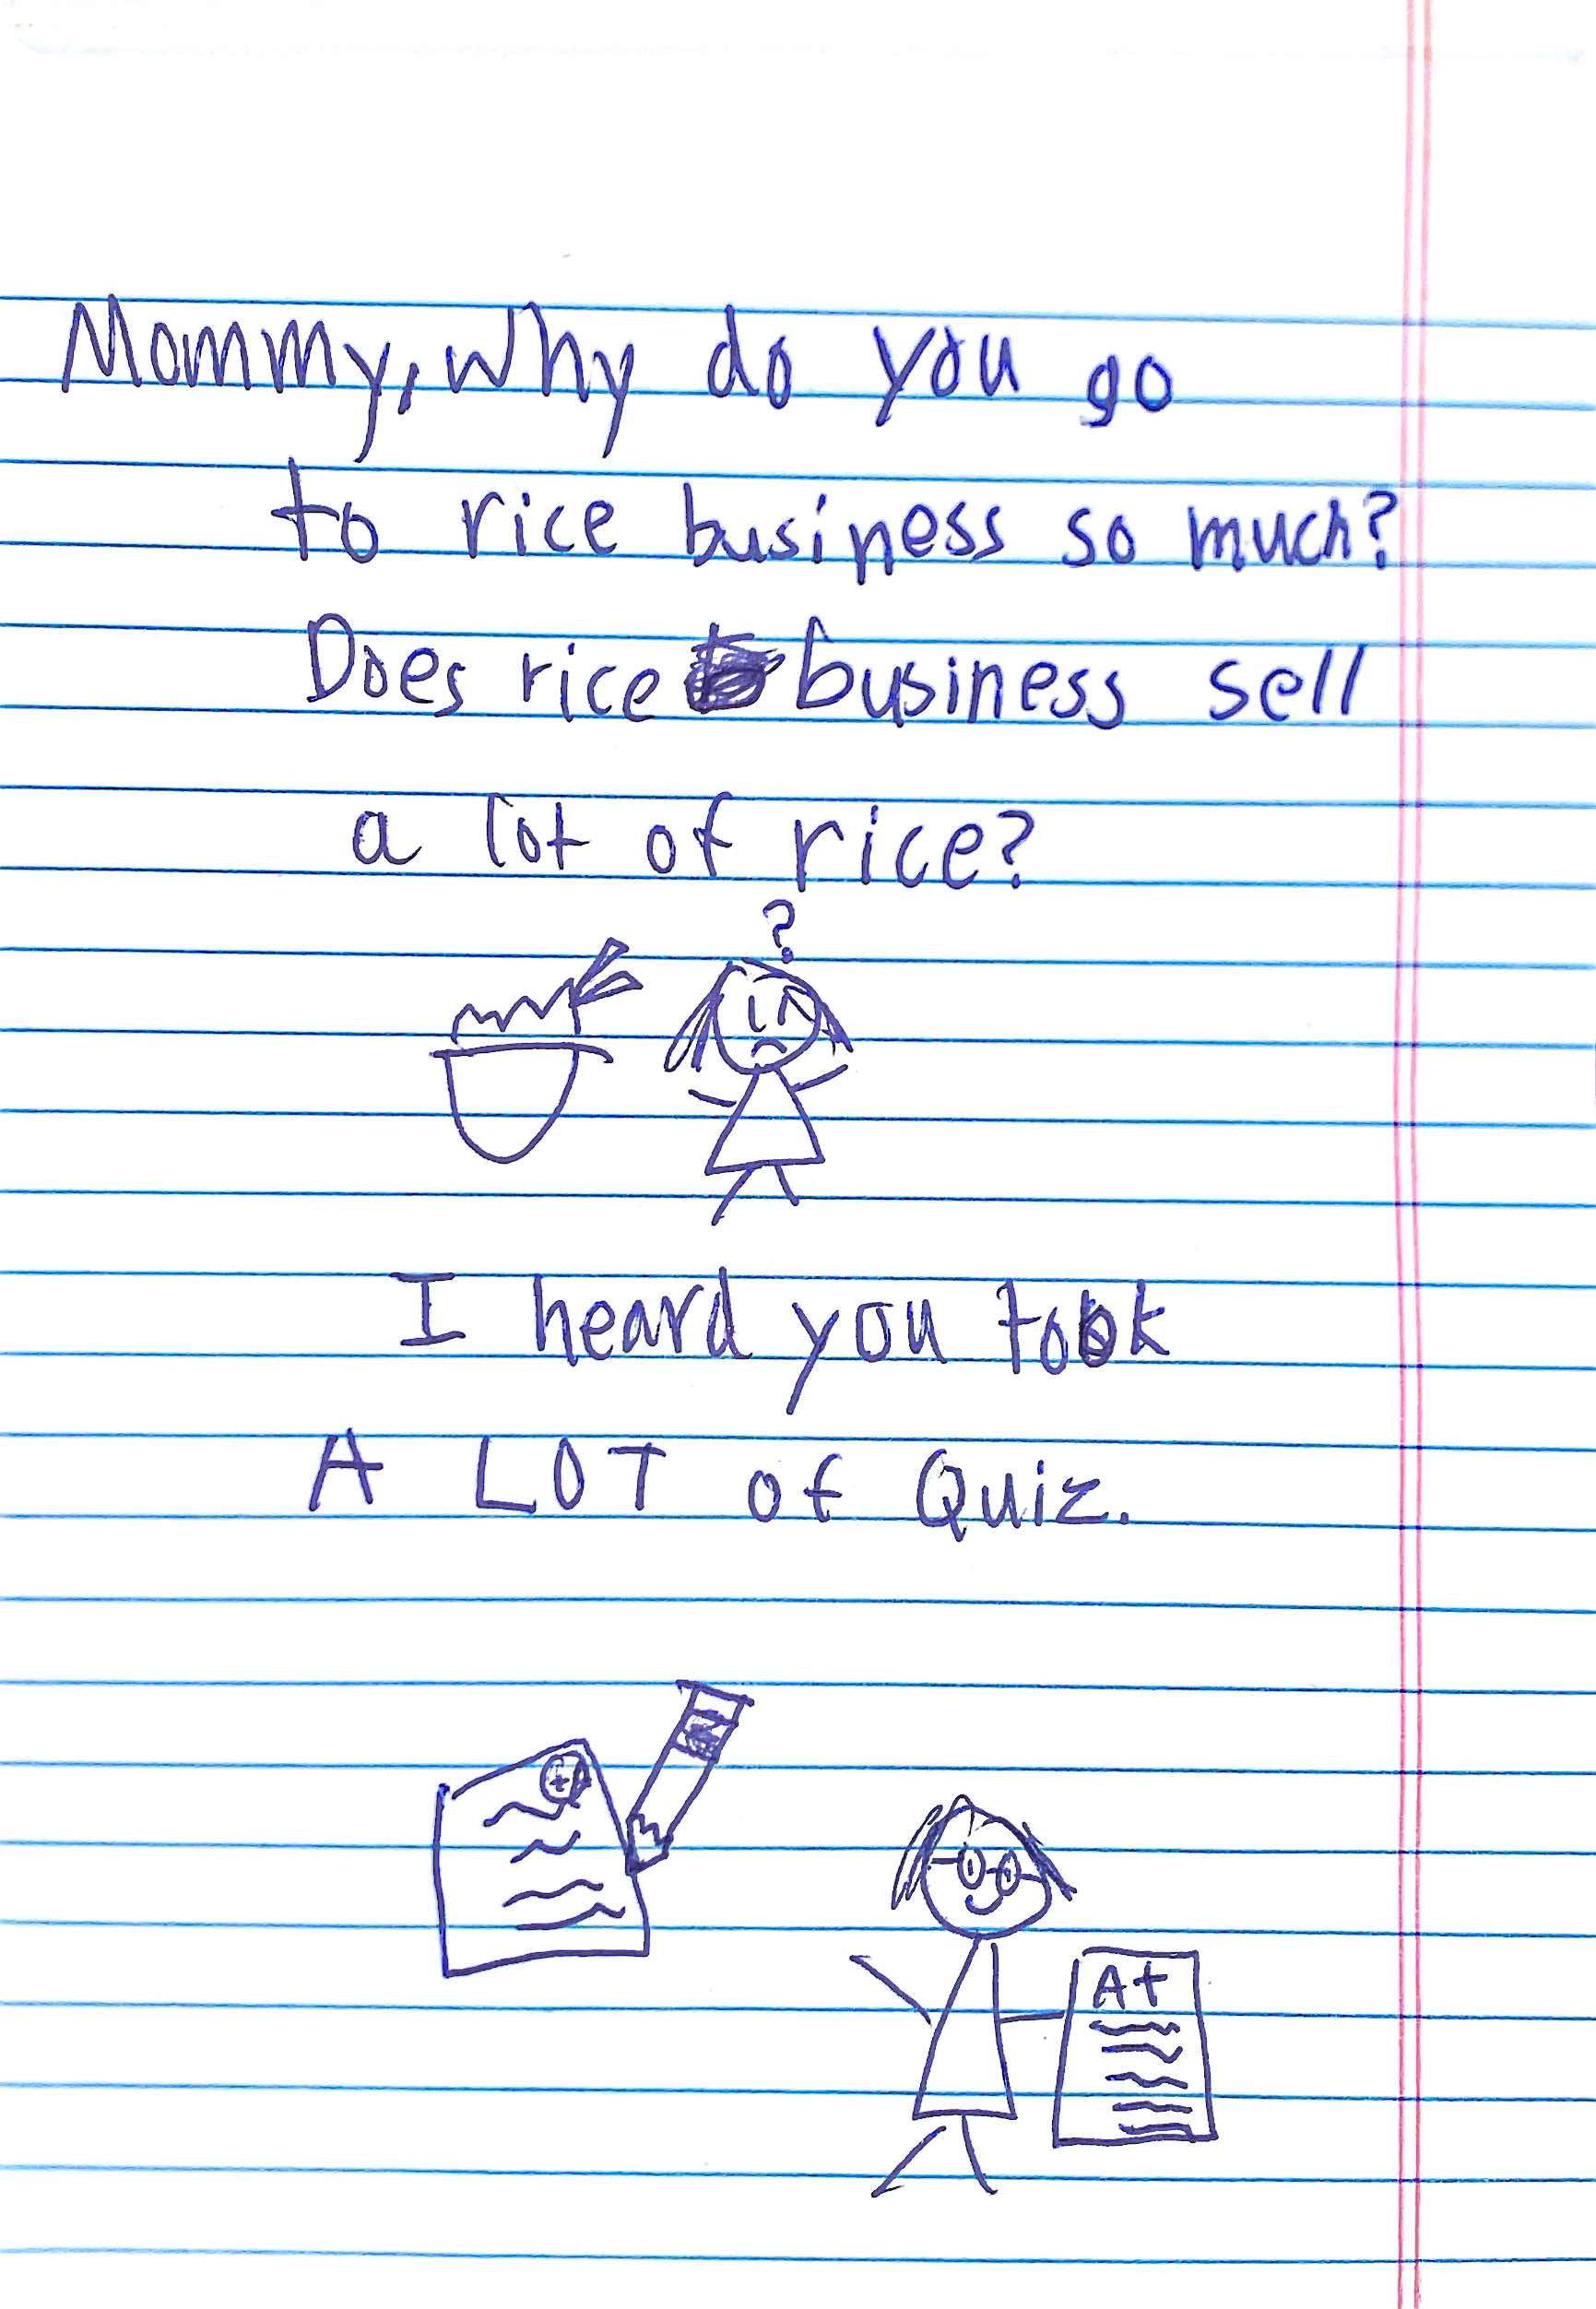 Mommy, why do you go
to rice business so much?
Does rice business sell
a lot of rice?
?
I heard you took
A LOT of Quiz.
A+